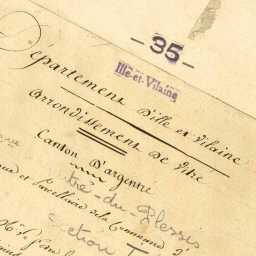 - 35 -
Ille-et-Vilaine
Département D'ille et vilaine
Arrondissement De Vitré
Canton D'argentré
tré-du-Plessis
et Parcellaire de la Commune d'
Section